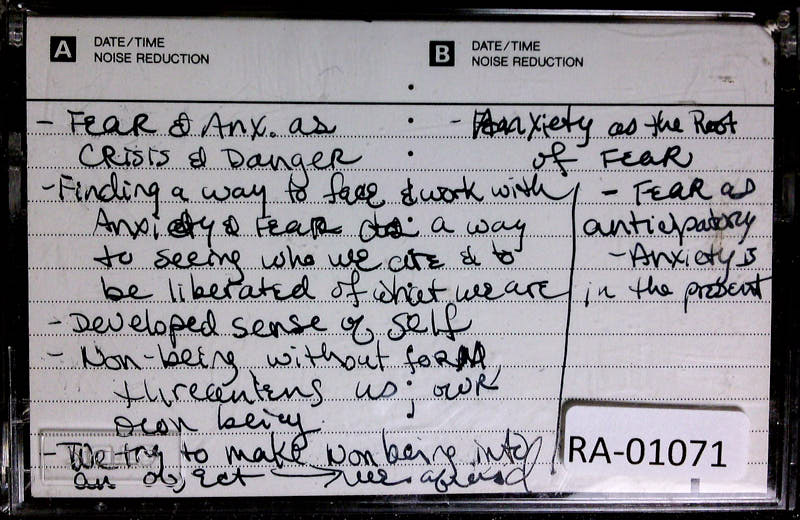 A DATE/TIME
NOISE REDUCTION
B DATE/TIME
NOISE REDUCTION
- Fear & Anx. as
Crisis & Danger
- Finding a way to face & work with
Anxiety & Fear as a way
to seeing who we are & to
be liberated of what we are
- Developed sense of self
- Non-being without form
threatens us; our
own being.
- We try to make Nonbeing into
an object → we afraid
- Anxiety as the Root
of Fear
- Fear as
anticipatory
- Anxiety is
in the present
RA-01071